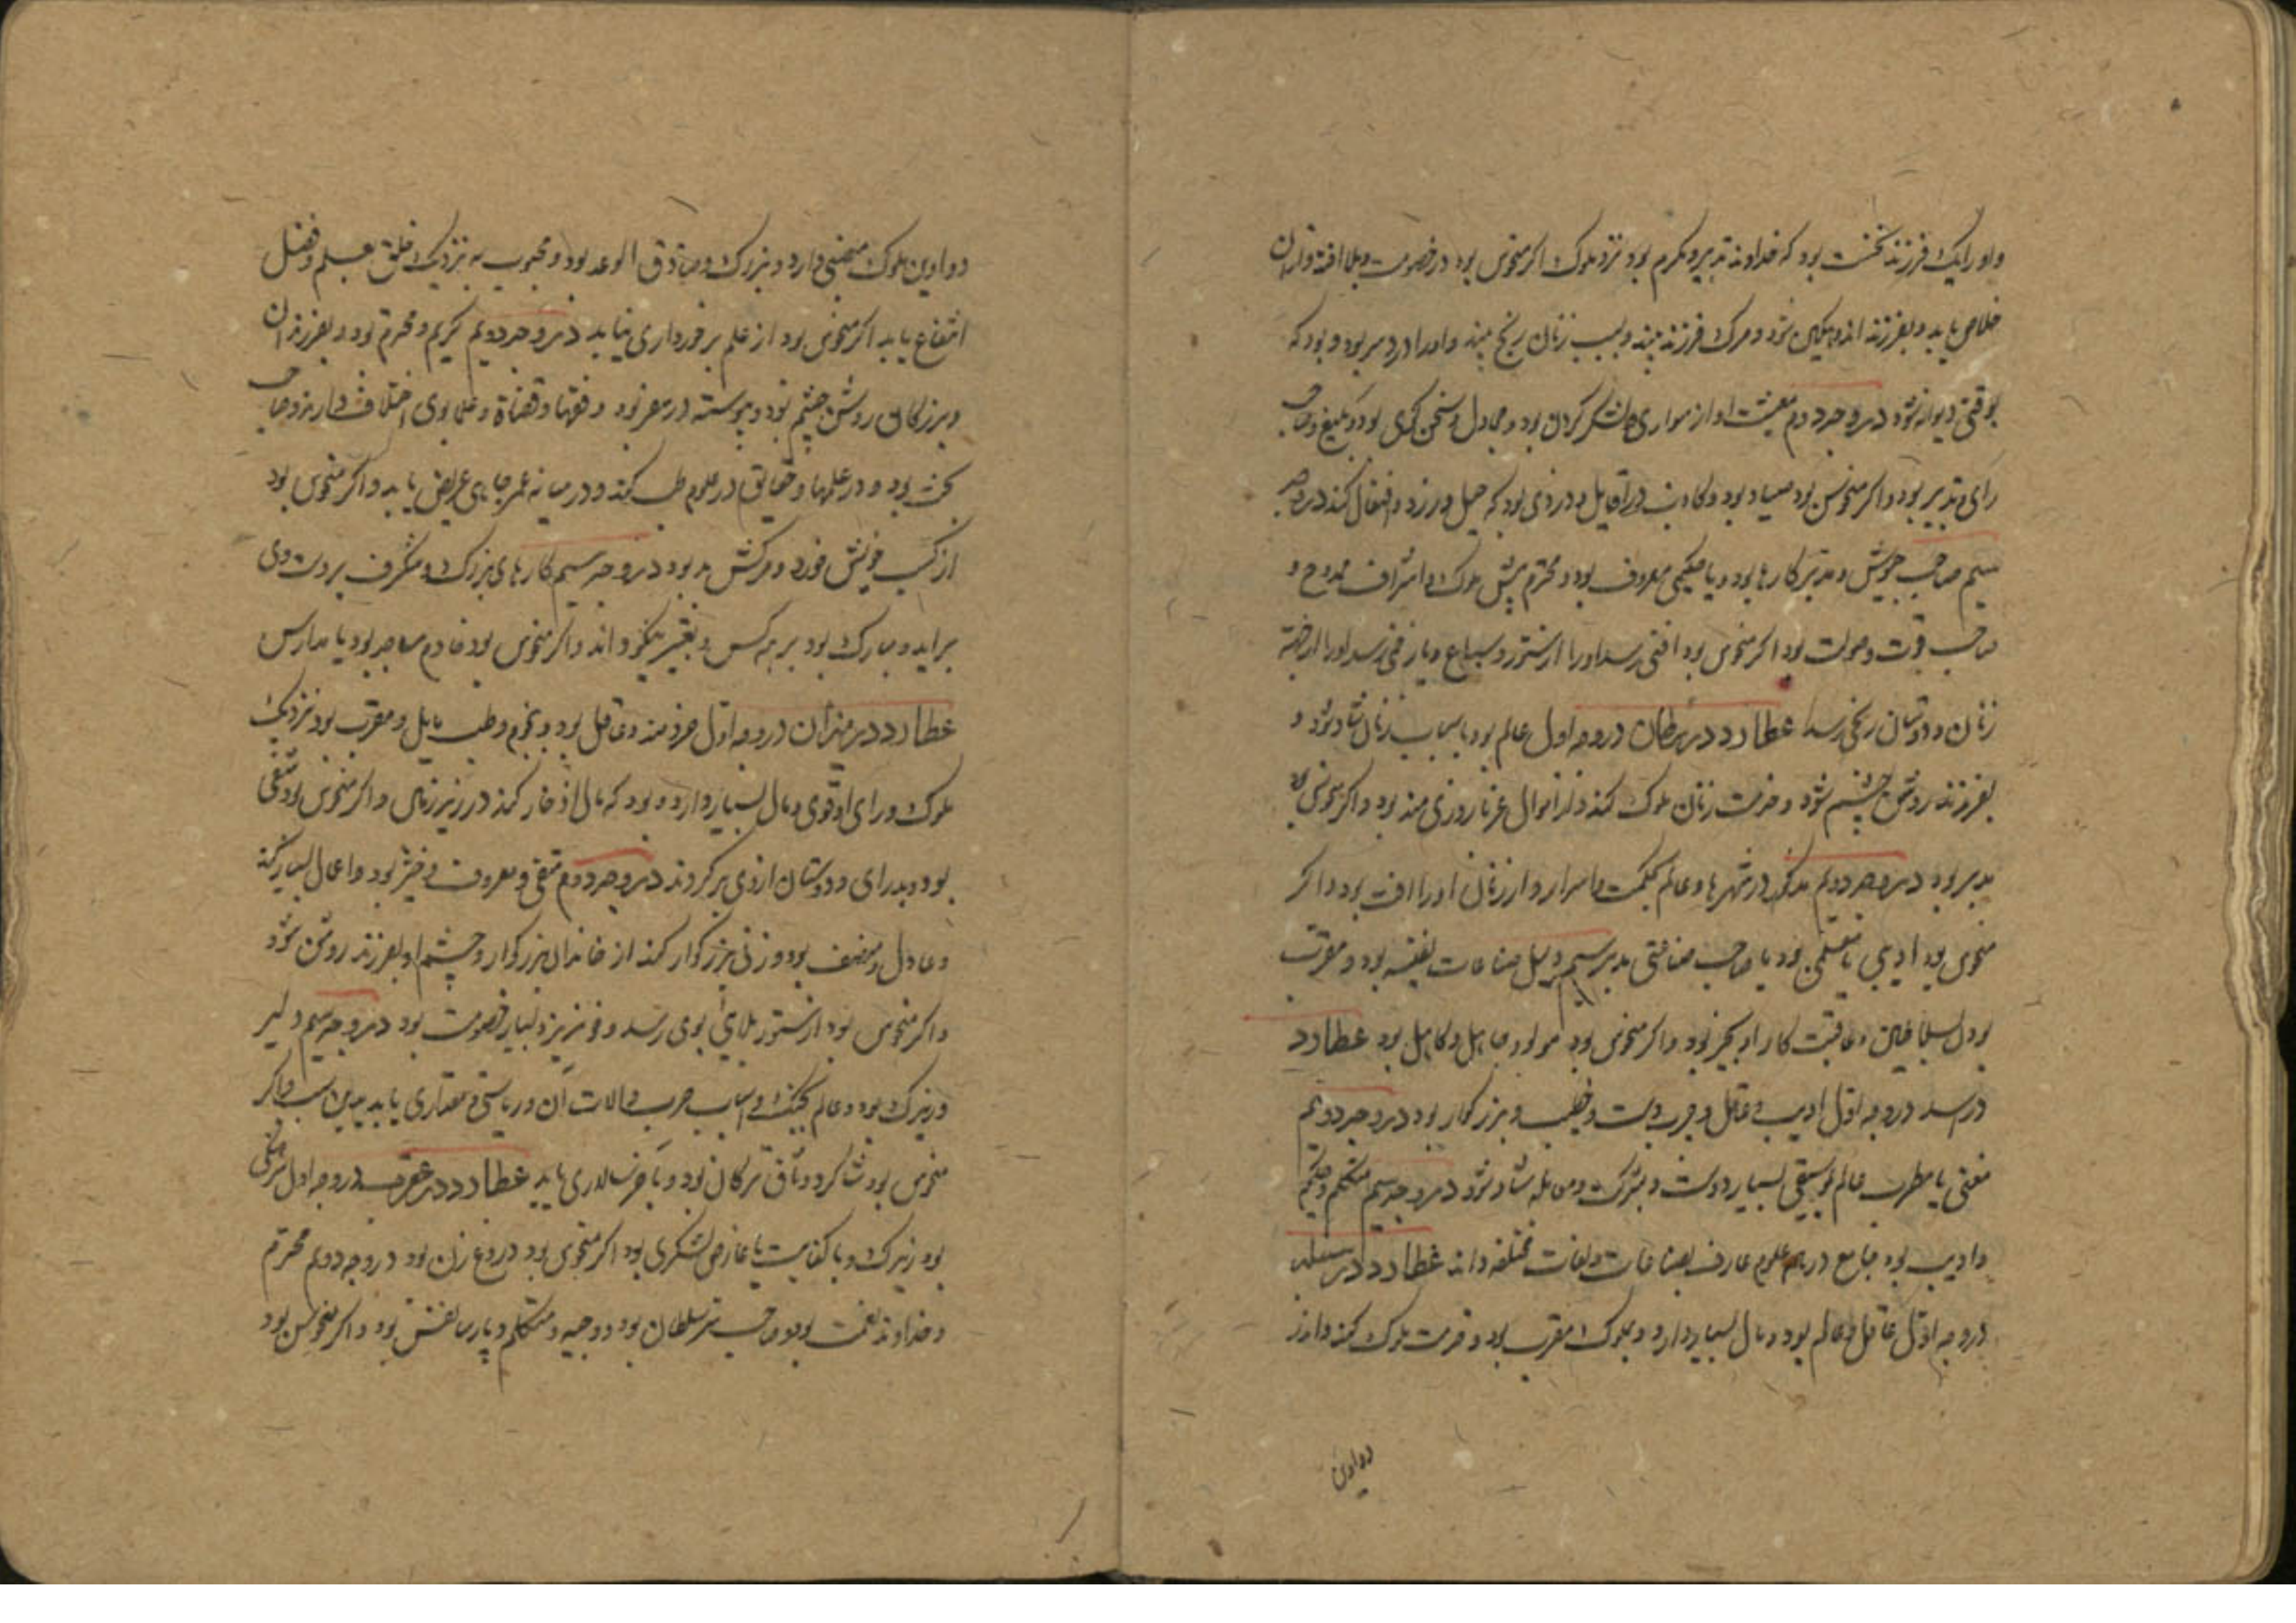 و او را یک فرزند نخست بود که خداوند تدبیر و مکرم بود نزد ملوک اکر منحوس بود در خصومت و بلا افتد و از آن
خلاص یابد و بفرزند اندوهکین شود و مرک فرزند بیند و بسبب زنان رنج بیند و او را درد سر بود و بود که
بوقتی دیوانه شود در وجه دوم معیشت او از سواری و لشکر کردن بود و مجادل و سخن کوی بود و بلیغ و صاحب
رای و تدبیر بود و اکر منحوس بود صیاد بود و کاذب در اقاویل و دزدی بود که حیل ورزد و افتعال کند در وجه
سیم صاحب جیوش و مدبر کارها بود و یا حکیمی معروف بود و محترم پیش ملوک و اشراف ممدوح و
صاحب قوت و صولت بود اکر منحوس بود افتی رسد او را از ستور و سباع و یا زخمی رسد او را از جهة
زنان و دوستان رنجی رسد عطارد در سرطان در وجه اول عالم بود باسباب زنان شاد شود و
بفرزند روشن چشم شود و خدمت زنان ملوک کند و از اموال غربا روزی مند بود و اکر منحوس بود
مدبر بود در وجه دوم مذکور در شهرها و عالم بحکمت و اسرار و از زنان او را افت بود و اکر
منحوس بود ادیبی یا معلمی بود یا صاحب صناعتی مدبر سیم دلیل صناعات نفیسه بود و مقرب
بود بسلاطین و عاقبت کار او بخیر بود و اکر منحوس بود مولود جاهل و کاهل بود عطارد
در اسد در وجه اول ادیب و عاقل و چرب دست و خطیب و بزرکوار بود در وجه دوم
مغنی یا مطرب عالم بموسیقی بسیار دوست و بشرکت و معامله شاد شود در وجه سیم متکلم و حکیم
و ادیب بود جامع در هر علوم عارف بصناعات و لغات مختلفه داند عطارد در سنبله
در وجه اول عاقل و عالم بود و مال بسیار دارد و بملوک مقرب بود و خدمت ملوک کند و از
دواوین
دواوین ملوک منحنی دارد و بزرک و صادق الوعد بود و محبوب به نزدیک خلق بعلم و فضل
انتفاع یابد اکر منحوس بود از علم برخورداری نیابد در وجه دوم کریم و محترم بود و بفرزندان
و بزرکان روشن چشم بود و پیوسته در سفر بود و فقها و قضاة و علما بوی اختلاف دارند و صاحب
بحث بود و در علمها و حقایق در علوم طلب کند و در میانه عمر جاهی عریض یابد و اکر منحوس بود
از کسب خویش خورد و مرکش بد بود در وجه سیم کارهای بزرک و شکرف بر دست وی
براید و مبارک بود بر همه کس و تفسیر نیکو داند و اکر منحوس بود خادم مساجد بود یا مدارس
عطارد در میزان در وجه اول خردمند و عاقل بود و بنجوم و طب مایل و مقرب بود نزدیک
ملوک و رای او قوی و مال بسیار دارد و بود که مال ادخار کند در زیر زمین و اکر منحوس بود شقی
بود و بدرای و دوستان از وی برکردند در وجه دوم متقی و معروف و خیر بود و اعمال بسیار کند
و عادل و منصف بود و زنی بزرکوار کند از خاندان بزرکوار و چشم او بفرزند روشن شود
و اکر منحوس بود از ستور بلای بوی رسد و خونریز و بسیار خصومت بود در وجه سیم دلیر
و زیرک بود و عالم بجنک و اسباب حرب و الات آن و ریاستی و مقداری یابد بدین سبب و اکر
منحوس بود شاکرد و ثاق ترکان بود و بآخر سالاری یابد عطارد در عقرب در وجه اول سرهنکی
بود زیرک و با کفایت یا عارض لشکری بود اکر منحوس بود دروغ زن بود در وجه دوم محترم
و خداوند نعمت بود و صاحب سر سلطان بود و وجیه و متکلم و پارسا نفس بود و اکر منحوس بود